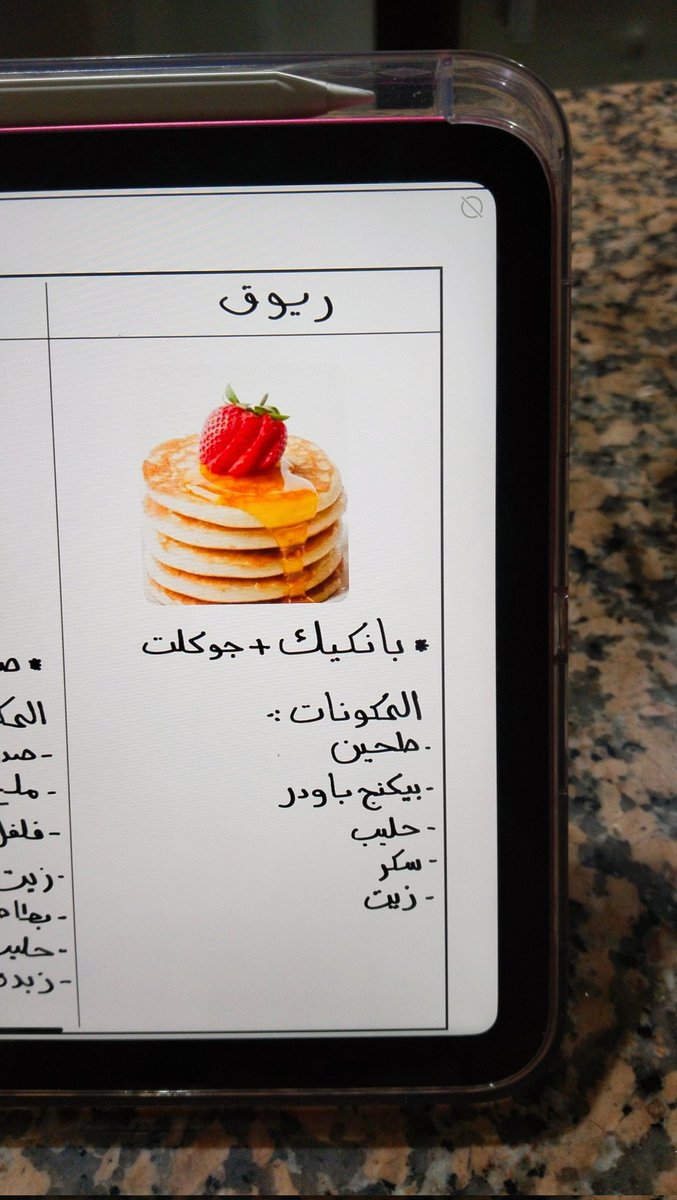 ريوق
* بانكيك + جوكلت
المكونات :-
- طحين
- بيكنج باودر
- حليب
- سكر
- زيت
*
- صد
- فلفل
- زيت
- حليب
- زبده